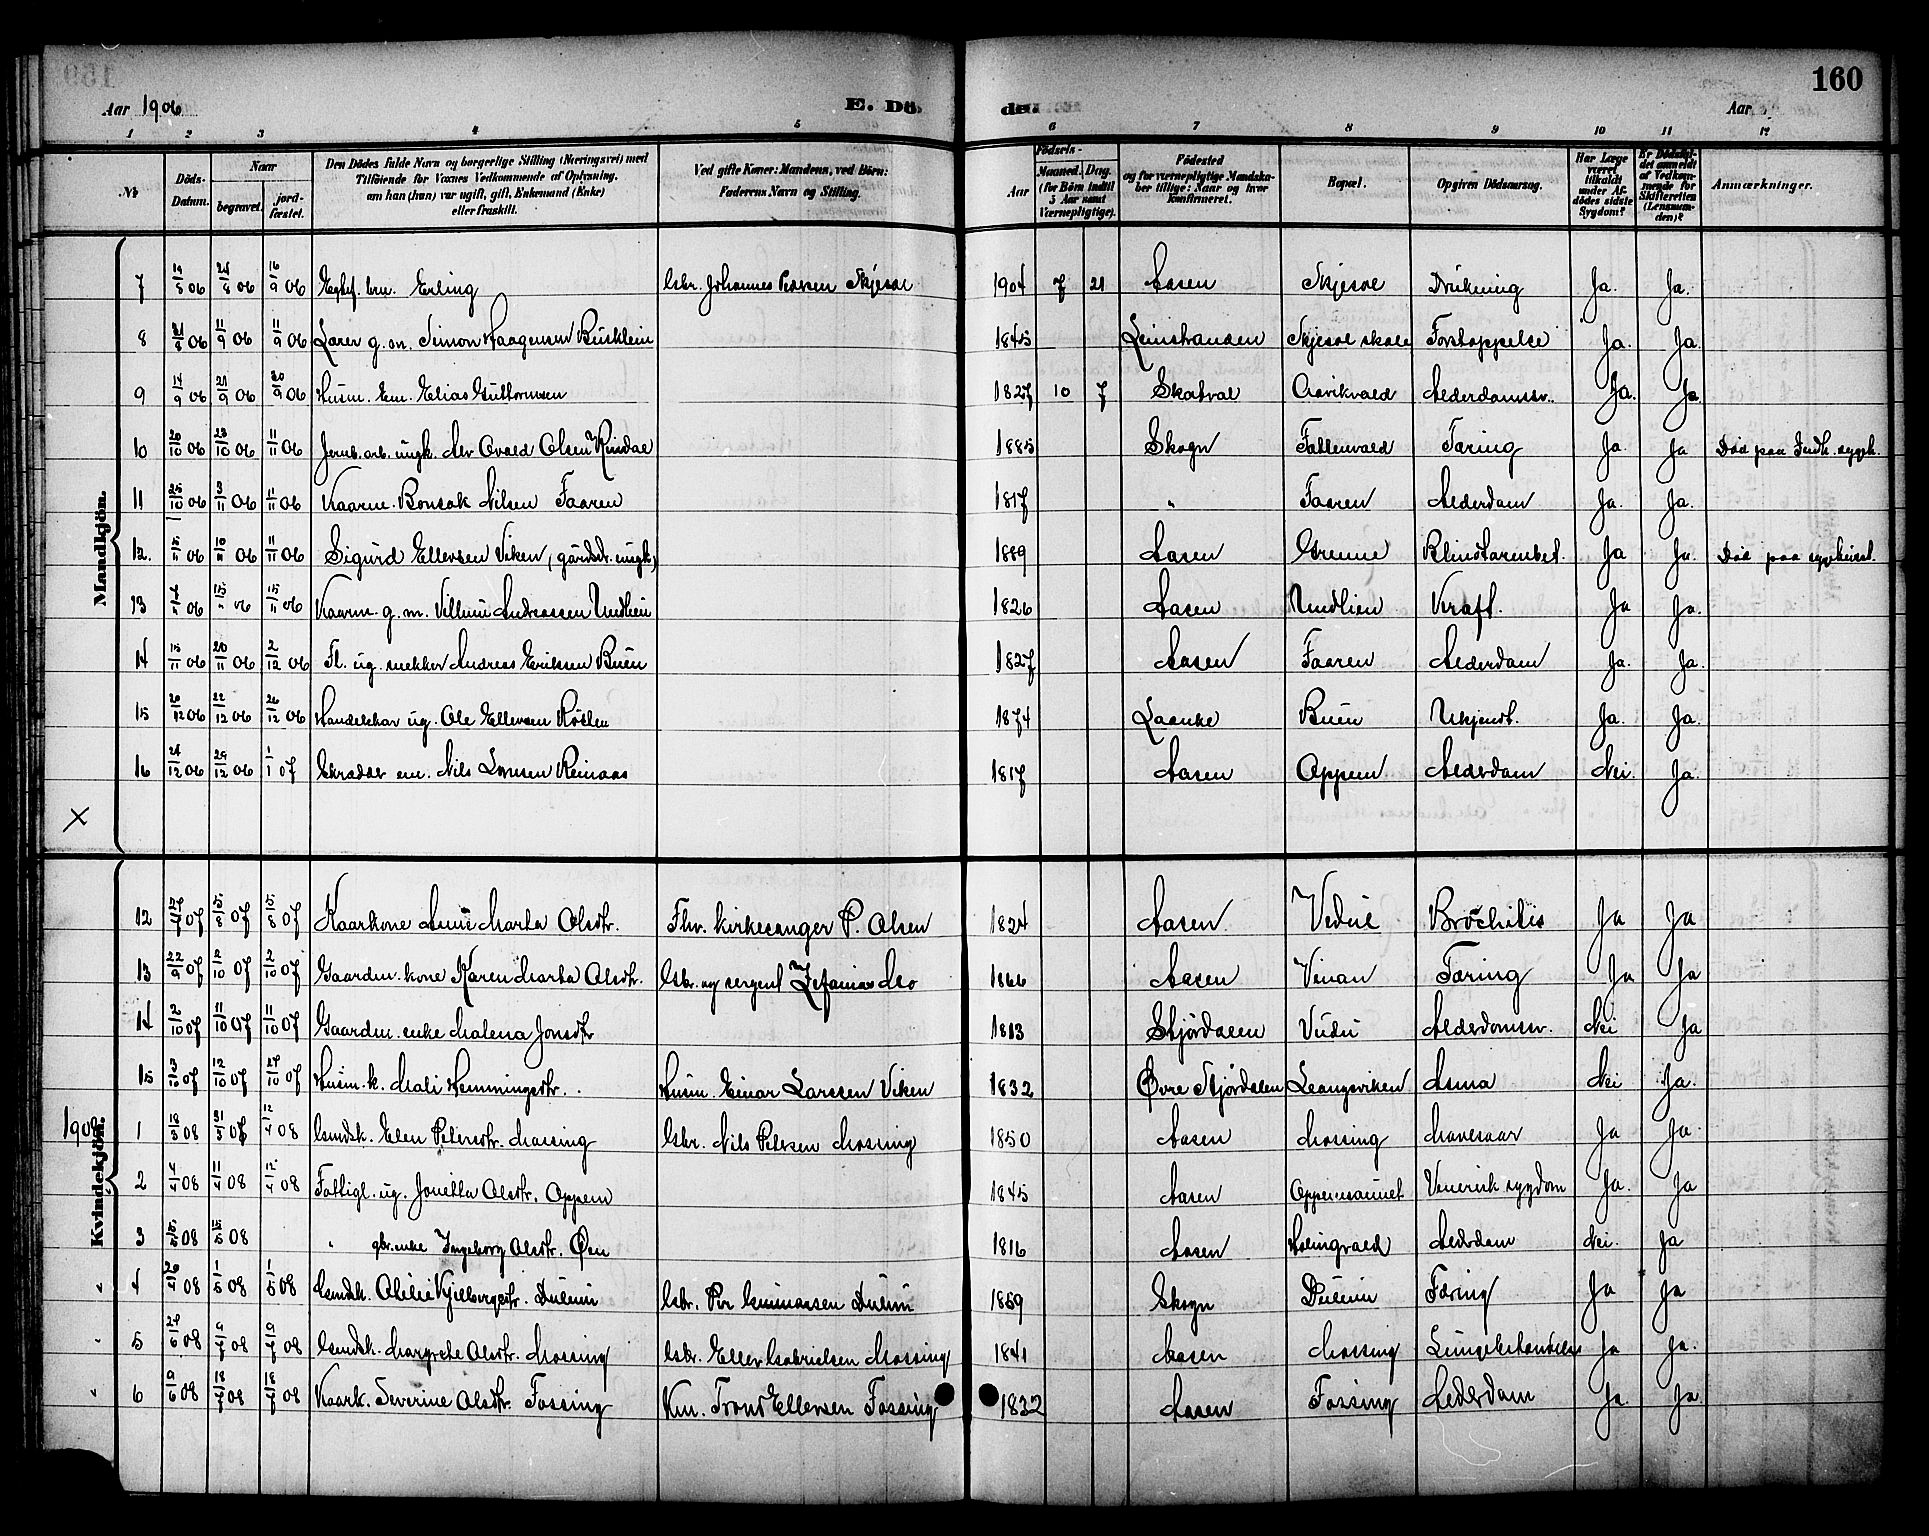 160
Aar 1906 E. Dö- de. Aar
1 2 3 4 5 6 7 8 9 10 11 12
№ Döds-Datum. Naar begravet. jord-fæstet. Den Dödes fulde Navn og borgerlige Stilling (Næringsvei) med Tilföiende for Voxnes Vedkommende af Oplysning, om han (hun) var ugift, gift, Enkemand (Enke) eller fraskilt. Ved gifte Koner: Mandens, ved Börn: Faderens Navn og Stilling. Födsels- Aar Maaned. Dag. (for Börn indtil 5 Aar samt Værnepligtige). Födested og for værnepligtige Mandskaber tillige: Naar og hvor konfirmeret. Bopæl. Opgiven Dödsaarsag. Har Læge været tilkaldt under Afdödes sidste Sygdom? Er Dödsfaldet anmeldt af Vedkommende for Skifteretten (Lensmanden)? Anmærkninger.
Mandkjön.
7 19/8 06 24/8 06 16/9 06 Egtef. brn. Erling Gbr. Johannes Pedersen Skjesol 1904 7 21 Aasen Skjesol Drukning Ja. Ja.
8 31/8 06 11/9 06 11/9 06 Lærer g. m. Simon Haagensen Busklein 1845 Leinstranden Skjesol skole Forstoppelse Ja. Ja.
9 17/9 06 21/9 06 30/9 06 Husm. Em. Elias Guttormsen 1827 10 7 Skatval Aavikvald Alderdomssv. Ja. Ja.
10 20/10 06 23/10 06 11/11 06 Jernb. arb. ungk. Olsen Rindal 1885 Skogn Fallenvald Tæring Ja. Ja Död paa Indh. sygeh.
11 25/10 06 3/11 06 11/11 06 Kaarm. Bonsak Nilsen Faaren 1817 " Faaren Alderdom Ja. Ja.
12. 5/11 06 10/11 06 11/11 06 Sigurd Ellevsen Viken, (gårddr. ungk) 1889 Aasen Grenne Blindtarmbet. Ja Ja. Död paa sygehuset.
13 06 15/11 06 15/11 06 Kaarm. g. m. Villum Andreassen Undlien 1826 Aasen Undlien Kræft. Ja Ja.
14 15/11 06 20/11 06 2/12 06 Fl. ug. snekker Andreas Eriksen Buen 1827 Aasen Faaren Alderdom Ja. Ja.
15 20/12 06 22/12 06 26/12 06 Handelskar ug. Ole Ellevsen Röslen 1874 Laanke Buen Ukjendt. Ja. Ja.
16 24/12 06 29/12 06 1/1 07 em. Nils Larssen Reinaas 1817 Aasen Oppem Alderdom Nei Ja.
×
Kvindekjön.
12 27/7 07 5/8 07 5/8 07 Kaarkone Anne Marta Olsdtr. Fhv. kirkesanger P. Olsen 1824 Aasen Vedul Brochitis Ja Ja
13 22/9 07 2/10 07 2/10 07 Gaardm. kone Karen Marta Olsdtr. Gbr. og sergent Zefanias Mo 1866 Aasen Vinan Tæring Ja Ja
14 2/10 07 11/10 07 11/10 07 Gaardm. enke Malena Jonsdtr 1813 Stjördalen Vudu Alderdomssv. Nei Ja
15 3/10 07 12/10 07 27/10 07 Husm. k. Mali Hemmingsdtr. Husm. Einar Larssen Viken 1832 Övre Stjördalen Leangsviken Asma Nei Ja.
1908 1 18/3 08 31/3 08 12/4 08 Gmdsk. Elen Petersdtr. Mossing Gbr. Nils Petersen Mossing 1850 Aasen Mossing Mavesaar Ja Ja.
2 4/4 08 11/4 08 12/4 08 Fattigl. ug. Jonetta Olsdtr. Oppem 1845 Aasen Oppemsaunet Venerisk sygdom Ja. Ja
3 15/5 08 08 " gbr. enke Ingeborg Olsdtr. Öen 1816 Aasen Holingvald Alderdom Nei. Ja
" 4 26/4 08 1/5 08 1/5 08 Gmdsk. Olilie Kjilbergsdtr. Dullum Gbr. Per Gunnarsen Dullum 1859 Skogn Dullum Tæring Ja Ja
" 5 28/6 08 9/7 08 9/7 08 Gmdsk. Margrete Olsdtr. Mossing Gbr. Ellev Gabrielsen Mossing 1841 Aasen Mossing Ja Ja.
" 6 9/6 08 18/7 08 18/7 08 Kaark. Severine Olsdtr. Fossing Km. Trond Ellevsen Fossing 1832 Aasen Fossing Alderdom Ja. Ja.